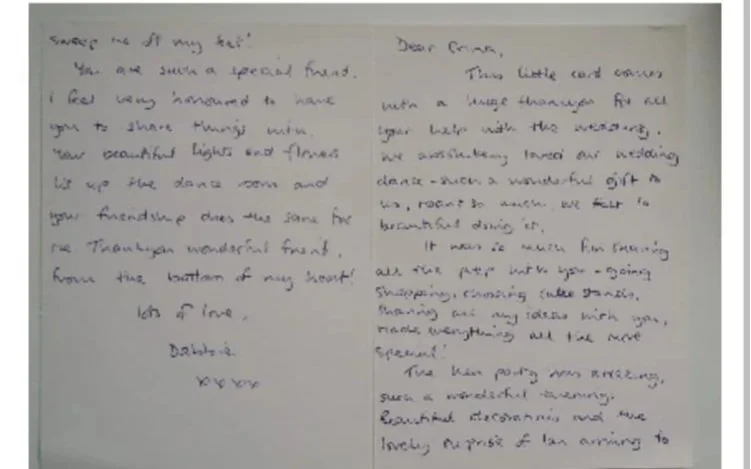 Dear
This little card comes
with a huge thankyou for all
your help with the wedding.
We absolutely loved our wedding
dance - such a wonderful gift to
us, meant so much, we felt so
beautiful doing it.
It was so much fun sharing
all the prep with you - going
shopping, choosing cake stands,
sharing all my ideas with you,
made everything all the more
special!
The hen party was amazing,
such a wonderful evening.
Beautiful decorations and the
lovely surprise of Ian arriving to
sweep me off my feet!
You are such a special friend.
I feel very honoured to have
you to share things with.
Your beautiful lights and flowers
lit up the dance room and
your friendship does the same for
me. Thankyou wonderful friend,
from the bottom of my heart!
lots of love,
Debbie
xxxx